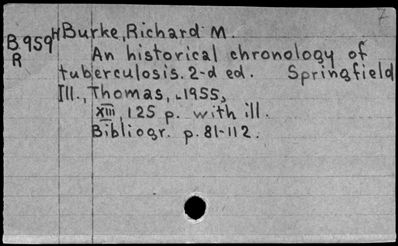 7
B959H Burke, Richard M.
R An historical chronology of
tuberculosis. 2-d ed. Springfield
Ill., Thomas, 1955,
XIII, 125 p. with ill.
Bibliogr. p. 81-112.